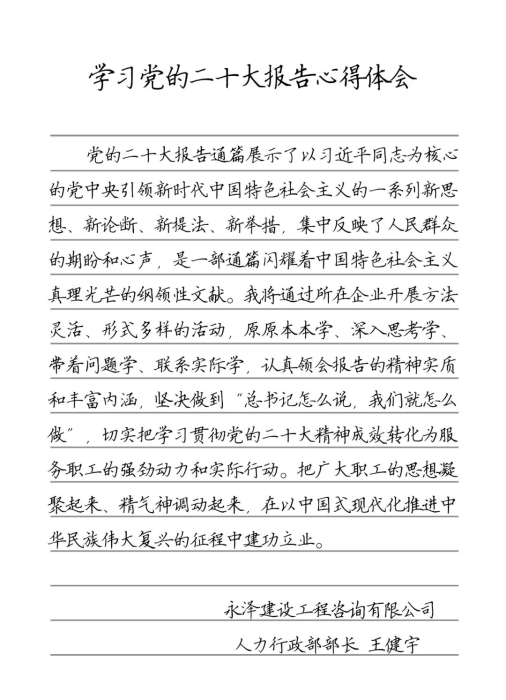 学习党的二十大报告心得体会
党的二十大报告通篇展示了以习近平同志为核心
的党中央引领新时代中国特色社会主义的一系列新思
想、新论断、新提法、新举措，集中反映了人民群众
的期盼和心声，是一部通篇闪耀着中国特色社会主义
真理光芒的纲领性文献。我将通过所在企业开展方法
灵活、形式多样的活动，原原本本学、深入思考学、
带着问题学、联系实际学，认真领会报告的精神实质
和丰富内涵，坚决做到“总书记怎么说，我们就怎么
做”，切实把学习贯彻党的二十大精神成效转化为服
务职工的强劲动力和实际行动。把广大职工的思想凝
聚起来、精气神调动起来，在以中国式现代化推进中
华民族伟大复兴的征程中建功立业。
永泽建设工程咨询有限公司
人力行政部部长 王健宇